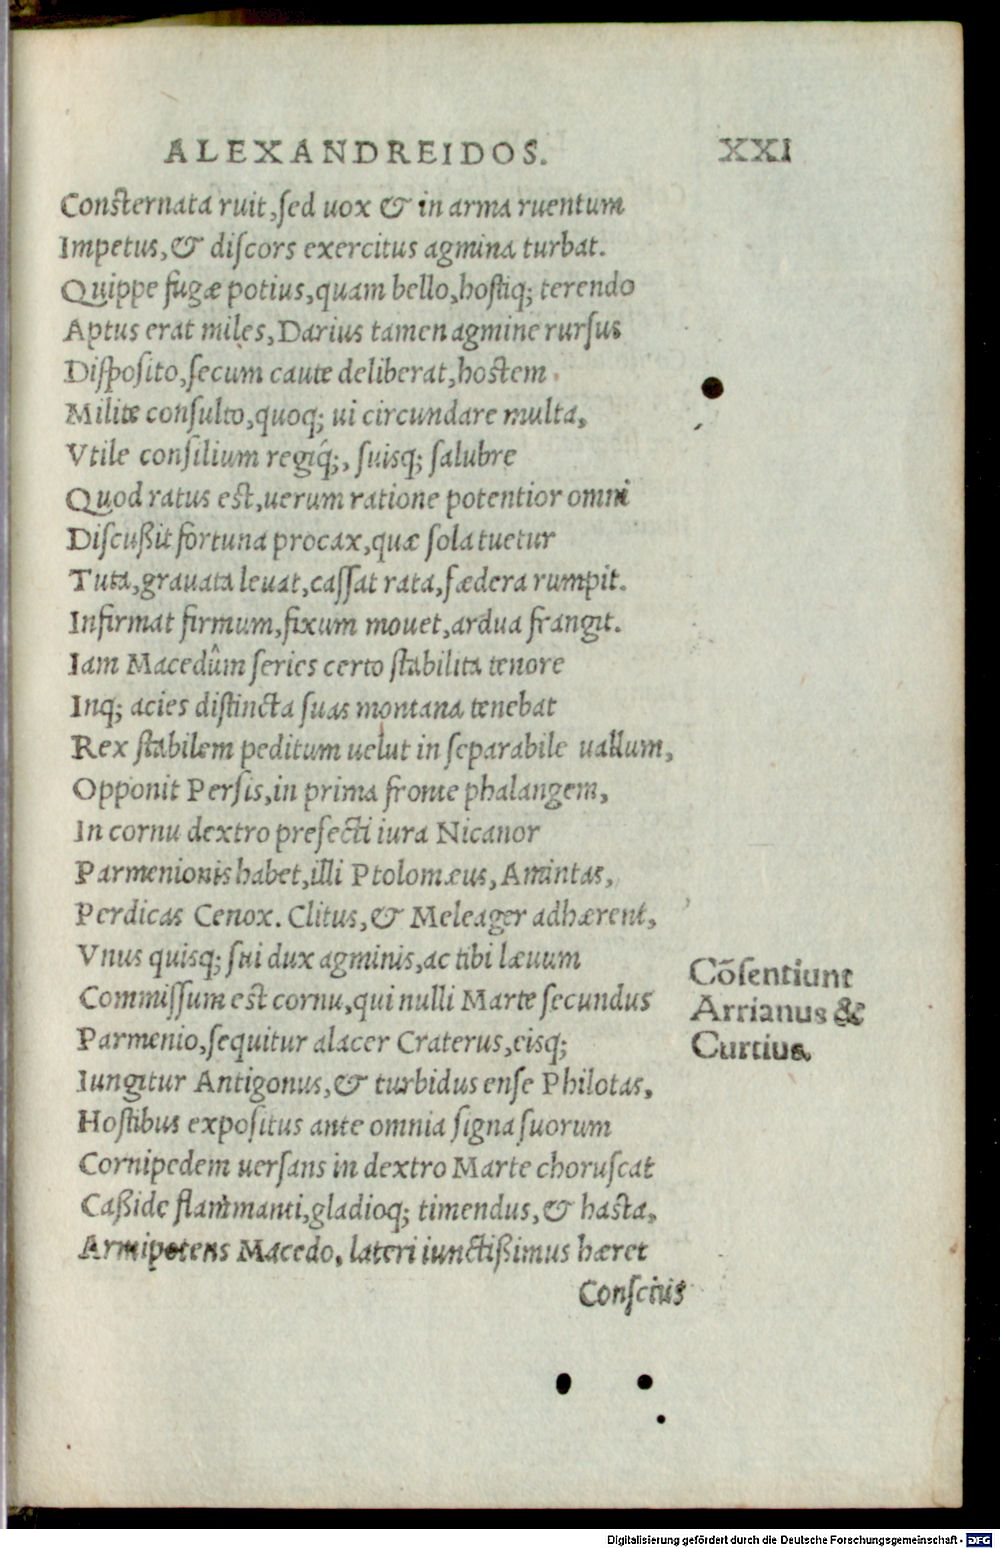 ALEXANDREIDOS. XXI
Consternata ruit, sed uox & in arma ruentum
Impetus, & discors exercitus agmina turbat.
Quippe fugæ potius, quam bello, hostiq; terendo
Aptus erat miles, Darius tamen agmine rursus
Disposito, secum caute deliberat, hostem
Milite consulto, quoq; ui circundare multa,
Vtile consilium regiq́;, suisq; salubre
Quod ratus est, uerum ratione potentior omni
Discußit fortuna procax, quæ sola tuetur
Tuta, grauata leuat, cassat rata, fædera rumpit.
Infirmat firmum, fixum mouet, ardua frangit.
Iam Macedûm series certo stabilita tenore
Inq; acies distincta suas montana tenebat
Rex stabilem peditum uelut in separabile uallum,
Opponit Persis, in prima fronte phalangem,
In cornu dextro prefecti iura Nicanor
Parmenionis habet, illi Ptolomæus, Amintas,
Perdicas Cenox. Clitus, & Meleager adhærent,
Vnus quisq; sui dux agminis, ac tibi læuum
Commissum est cornu, qui nulli Marte secundus
Parmenio, sequitur alacer Craterus, eisq;
Iungitur Antigonus, & turbidus ense Philotas,
Hostibus expositus ante omnia signa suorum
Cornipedem uersans in dextro Marte choruscat
Caßide flammanti, gladioq; timendus, & hasta,
Armipotens Macedo, lateri iunctißimus hæret
Conscius
Cõsentiunt
Arrianus &
Curtius.
Digitalisierung gefördert durch die Deutsche Forschungsgemeinschaft - DFG